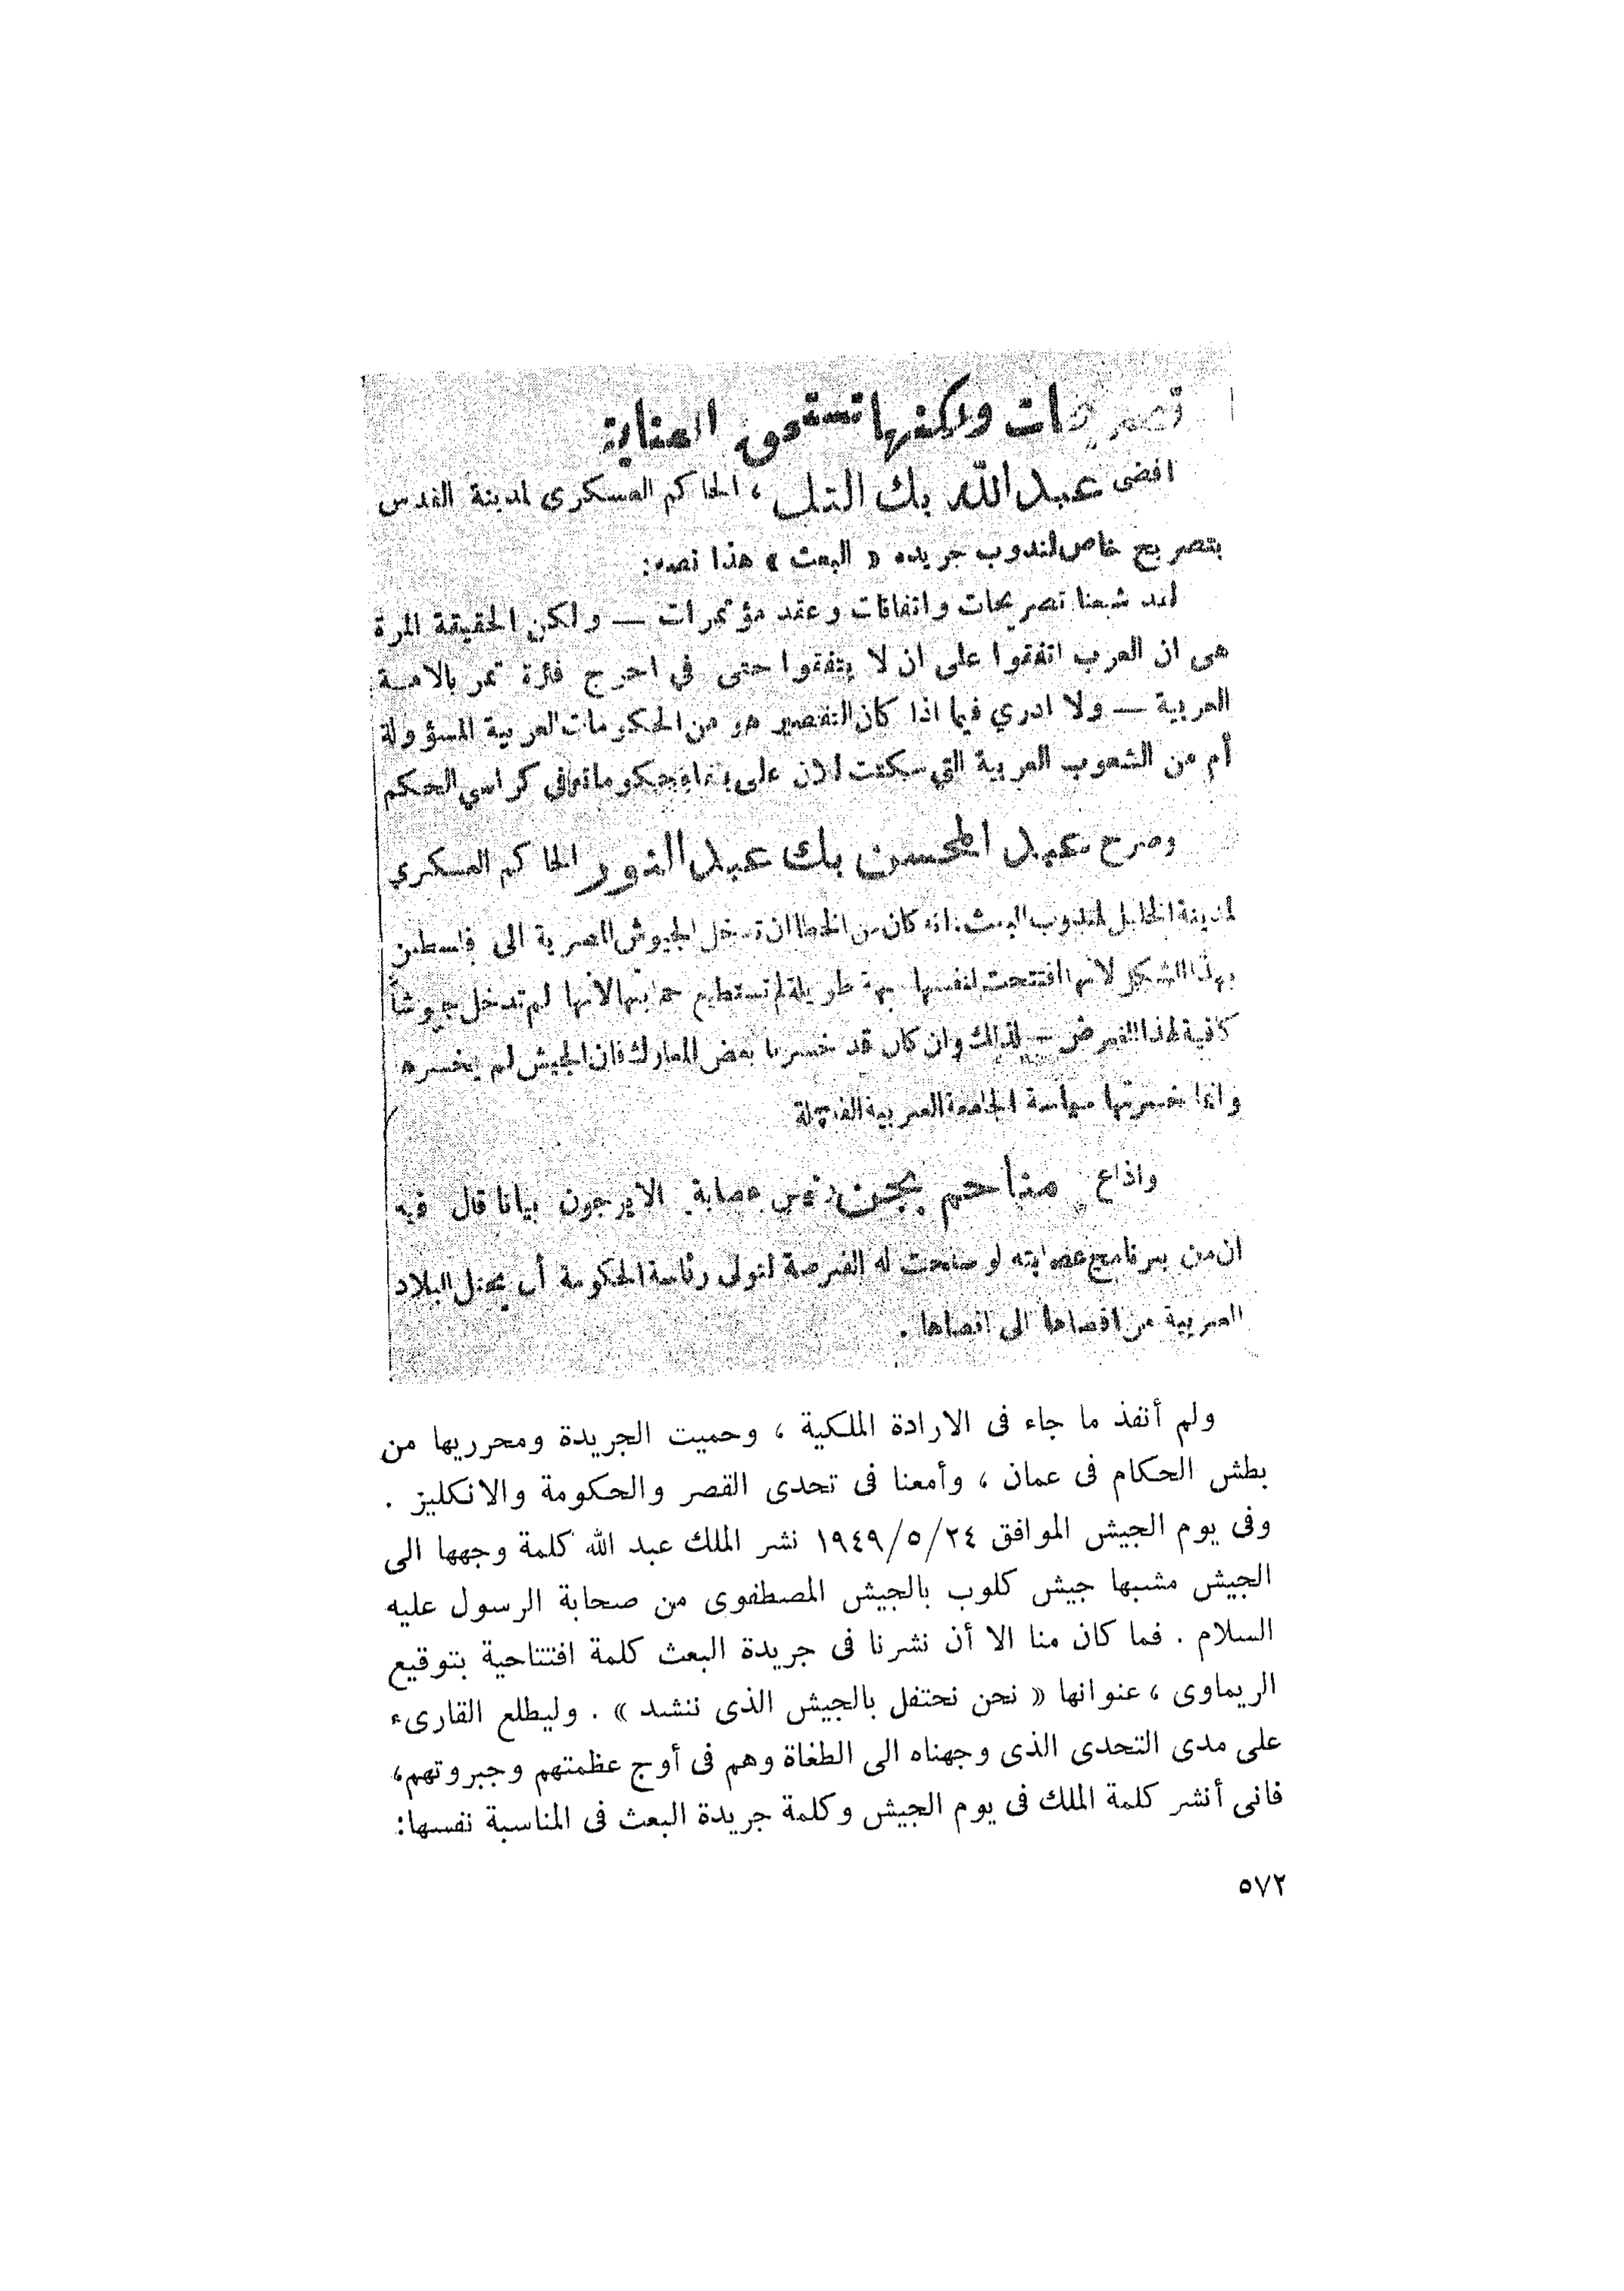 تصريحات ولكنها تستحق العناية
افضى عبدالله بك التل ، الحاكم العسكرى لمدينة القدس
بتصريح خاص لمندوب جريده « البعث » هذا نصه:
لقد شبعنا تصريحات واتفاقات وعقد مؤتمرات — ولكن الحقيقة المرة
هى ان العرب اتفقوا على ان لا يتفقوا حتى في احرج فترة تمر بالامة
العربية — ولا ادري فيما اذا كان التقصير هو من الحكومات العربية المسؤولة
أم من الشعوب العربية التي سكتت للان على بقاء حكوماتهم في كراسي الحكم
وصرح عبد المحسن بك عبد النور الحاكم العسكري
لمدينة الخليل لمندوب البعث: انه كان من الخطا ان تدخل الجيوش المصرية الى فلسطين
بهذا الشكل لانها افتتحت لنفسها جبهة طويلة لم تستطيع حمايتها لانها لم تدخل جيوشاً
كافية لهذا الغرض — لذلك وان كان قد خسرنا بعض المعارك فان الجيش لم يخسرها
وانما خسرتها سياسة الجامعة العربية الفاشلة
واذاع مناحم بيجن رئيس عصابة الايرجون بيانا قال فيه
ان من برنامج عصابته لو سنحت له الفرصة لتولى رئاسة الحكومة أن يحتل البلاد
العربية من اقصاها الى اقصاها .
ولم أنفذ ما جاء فى الارادة الملكية ، وحميت الجريدة ومحرريها من
بطش الحكام فى عمان ، وأمعنا فى تحدى القصر والحكومة والانكليز .
وفى يوم الجيش الموافق ١٩٤٩/٥/٢٤ نشر الملك عبد الله كلمة وجهها الى
الجيش مشبها جيش كلوب بالجيش المصطفوى من صحابة الرسول عليه
السلام . فما كان منا الا أن نشرنا فى جريدة البعث كلمة افتتاحية بتوقيع
الريماوى ، عنوانها « نحن نحتفل بالجيش الذى ننشد » . وليطلع القارىء
على مدى التحدى الذى وجهناه الى الطغاة وهم فى أوج عظمتهم وجبروتهم،
فانى أنشر كلمة الملك فى يوم الجيش وكلمة جريدة البعث فى المناسبة نفسها:
٥٧٢